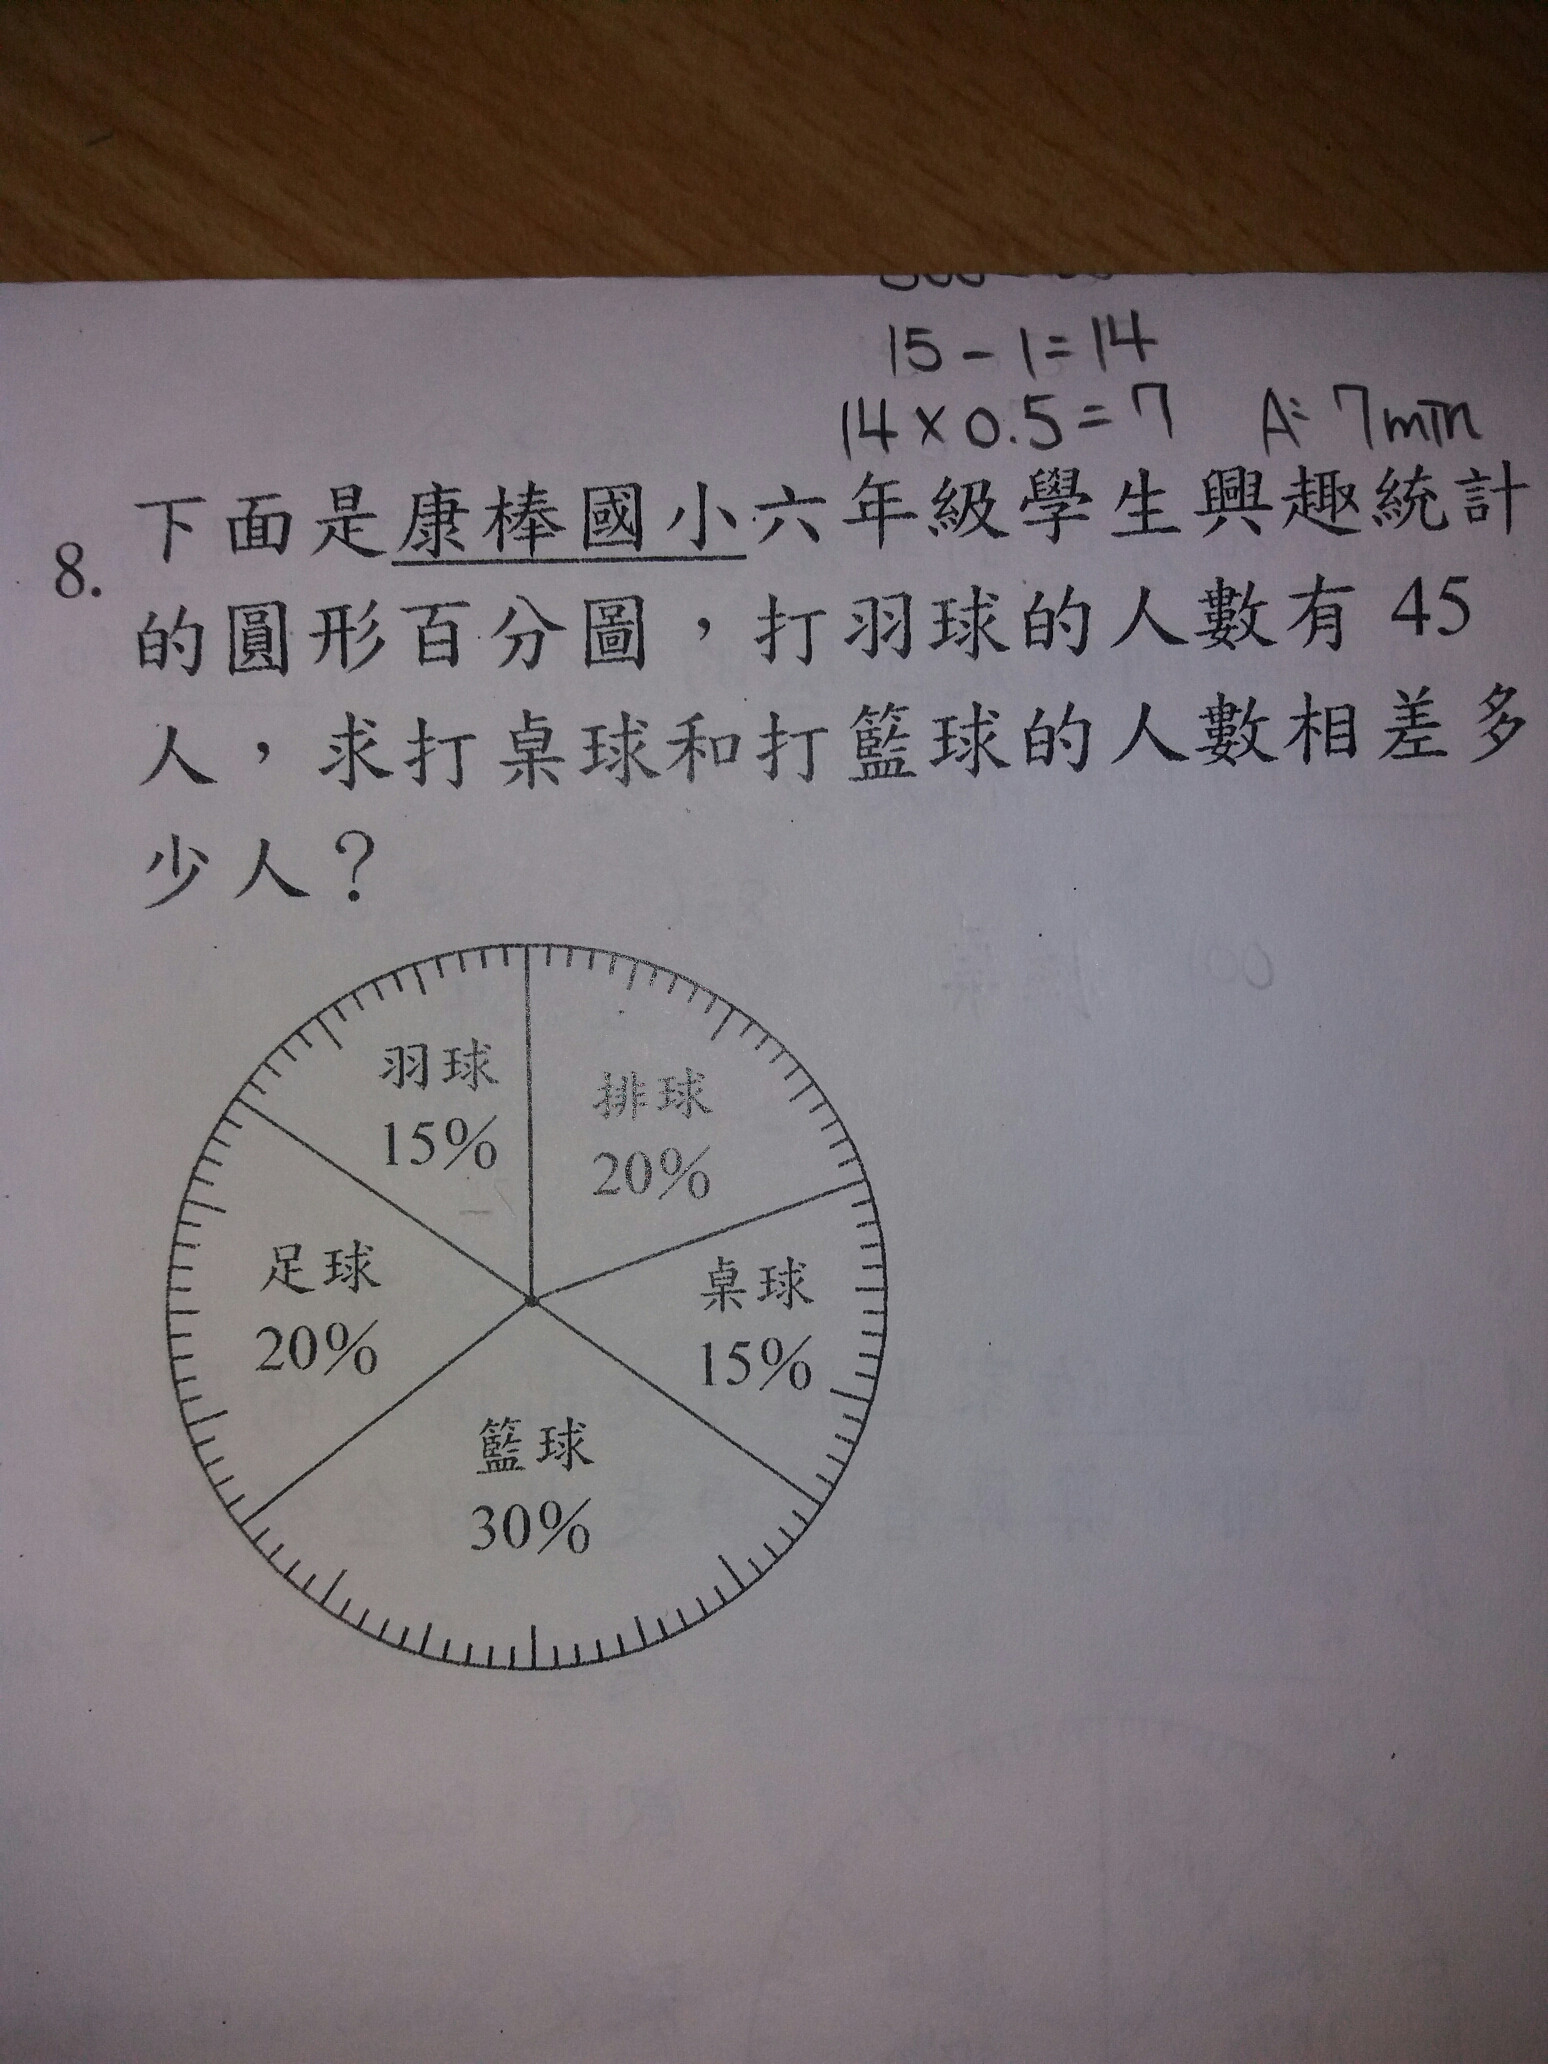 15-1=14
14×0.5=7 A:7min
8. 下面是康棒國小六年級學生興趣統計
的圓形百分圖,打羽球的人數有 45
人,求打桌球和打籃球的人數相差多
少人?
羽球
15%
排球
20%
足球
20%
桌球
15%
籃球
30%